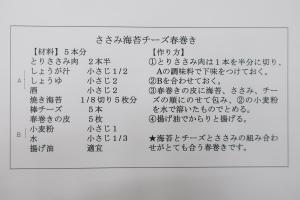 ささみ海苔チーズ春巻き
【材料】５本分
とりささみ肉　２本半
しょうが汁　小さじ１/２
A
しょうゆ　小さじ２
酒　小さじ２
焼き海苔　１/８切り５枚分
棒チーズ　５本
春巻きの皮　５枚
小麦粉　小さじ１
B
水　小さじ１/３
揚げ油　適宜
【作り方】
①とりささみ肉は１本を半分に切り、
Aの調味料で下味をつけておく。
②Bを合わせておく。
③春巻きの皮に海苔、ささみ、チー
ズの順にのせて包み、②の小麦粉
を水で溶いたものでとめる。
④揚げ油でからりと揚げる。
★海苔とチーズとささみの組み合わ
せがとても合う春巻きです。